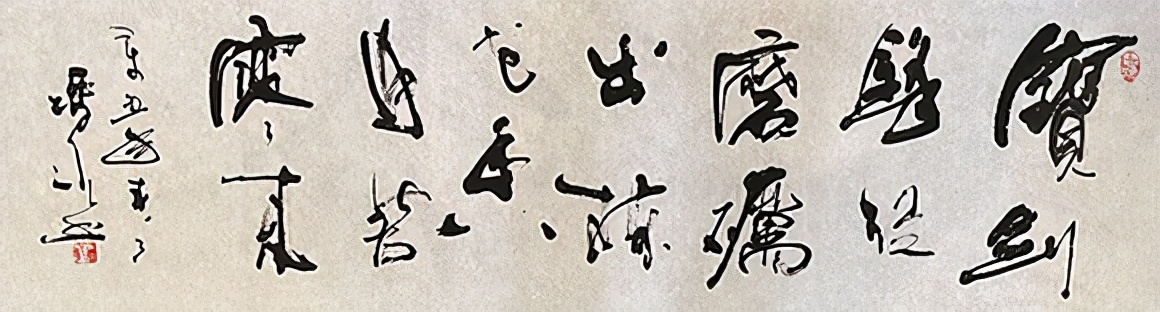 寶劍
鋒從
磨礪
出梅
花香
自苦
寒來
辛丑